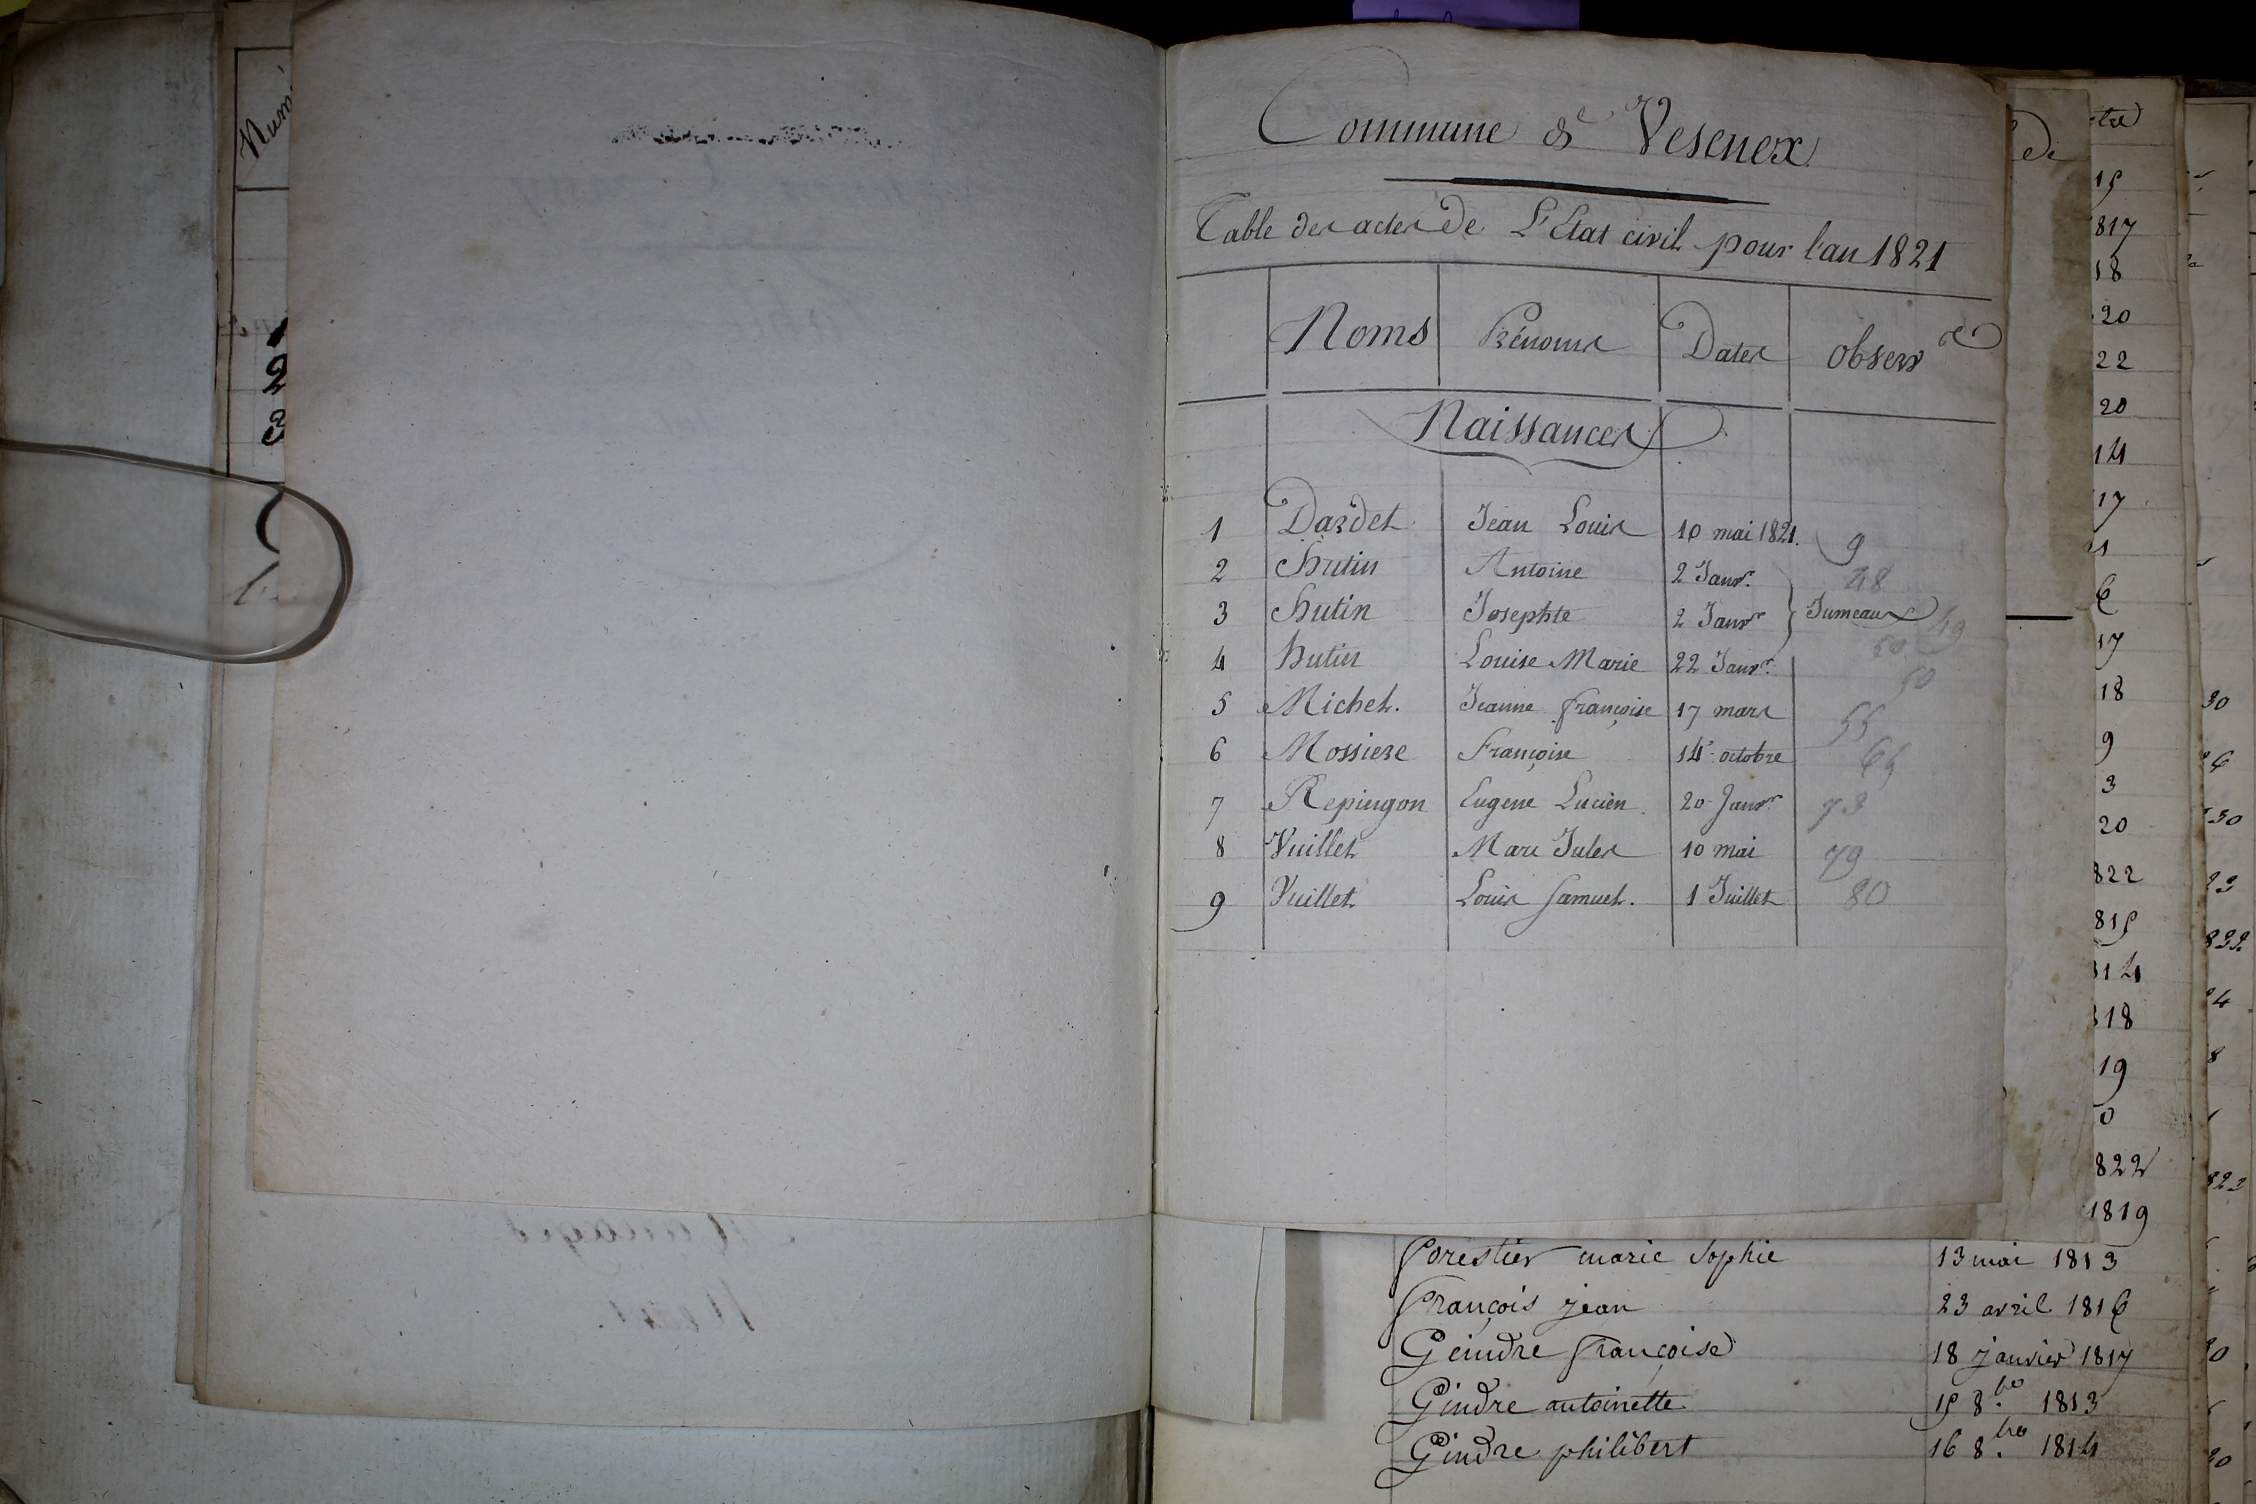 Commune de Vesenex
Table des actes de L'Etat civil pour l'an 1821
Noms Prénoms Dates observ
Naissances
1 Dardet Jean Louis 10 mai 1821. 9
2 hutin Antoine 2 Janvr. 48
3 hutin Josephte 2 Janvr Jumeaux 49
4 hutin Louise Marie 22 Janvr. 50
50
5 Michet. Jeanne françoise 17 mars 55
6 Mossiere françoise 14 octobre 64
7 Repingon Eugene Lucien 20 Janvr 73
8 Vuillet Marc Jules 10 mai 79
9 Vuillet Louis Samuel. 1 Juillet 80
forestier marie sophie 13 mai 1813
françois jean 23 avril 1816
Geindre françoise 18 janvier 1817
Gindre antoinette 15 8.bre 1813
Gindre philibert 16 8.bre 1814
Numé
2
3
de
15
817
18
20
22
20
14
17
6
17
18
9
3
20
822
815
814
818
19
0
822
1819
30
30
23
822
24
8
823
30
30